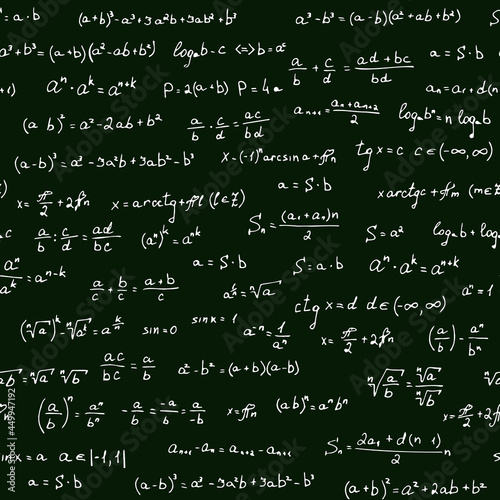 ⁿ = a·b
(a+b)³ = a³+3a²b+3ab²+b³
a³-b³ = (a-b)(a²+ab+b²)
a³+b³ = (a+b)(a²-ab+b²)
logₐb-c <=> b = aᶜ
a/b + c/d = (ad+bc)/bd
a = S·b
aⁿ·aᵏ = aⁿ⁺ᵏ
P=2(a+b)
P=4a
aₙ₊₁ = (aₙ+aₙ₊₂)/2
aₙ=a₁+d(n
(a-b)² = a²-2ab+b²
a/b · c/d = ac/bd
logₐbⁿ = n logₐb
(a-b)³ = a³-3a²b+3ab²-b³
x-(-1)ⁿarcsin a+πn
tg x=c c∈(-∞,∞)
a = S·b
x = π/2+2πn
x=arcctg+πl (l∈Z)
x arctgc+πm (m∈Z
a/b : c/d = ad/bc
(aⁿ)ᵏ = aⁿᵏ
Sₙ = (a₁+aₙ)n/2
S=a²
logₐb+log
aⁿ/aᵏ = aⁿ⁻ᵏ
a = S·b
S=a·b
aⁿ·aᵏ = aⁿ⁺ᵏ
a/c + b/c = (a+b)/c
a^(k/n) = ⁿ√a
a⁰ = 1
ctg x=d d∈(-∞,∞)
(ⁿ√a)ᵏ = ⁿ√aᵏ = a^(k/n)
sin=0
sin x = 1
a⁻ⁿ = 1/aⁿ
x = π/2+2πn
(a/b)-aⁿ/bⁿ
ac/bc = a/b
a²-b² = (a+b)(a-b)
ab = ⁿ√a ⁿ√b
ⁿ√(a/b) = ⁿ√a/ⁿ√b
(a/b)ⁿ = aⁿ/bⁿ
-a/b = -a/b = a/-b
x=πn
(ab)ⁿ = aⁿbⁿ
x = π/2+2π
x = a a∈|-1,1|
aₙ₊₁-aₙ = aₙ₊₂-aₙ₊₁
Sₙ = (2a₁+d(n 1))/2 n
a = S·b
(a-b)³ = a³-3a²b+3ab²-b³
(a+b)² = a²+2ab+b²
Adobe Stock